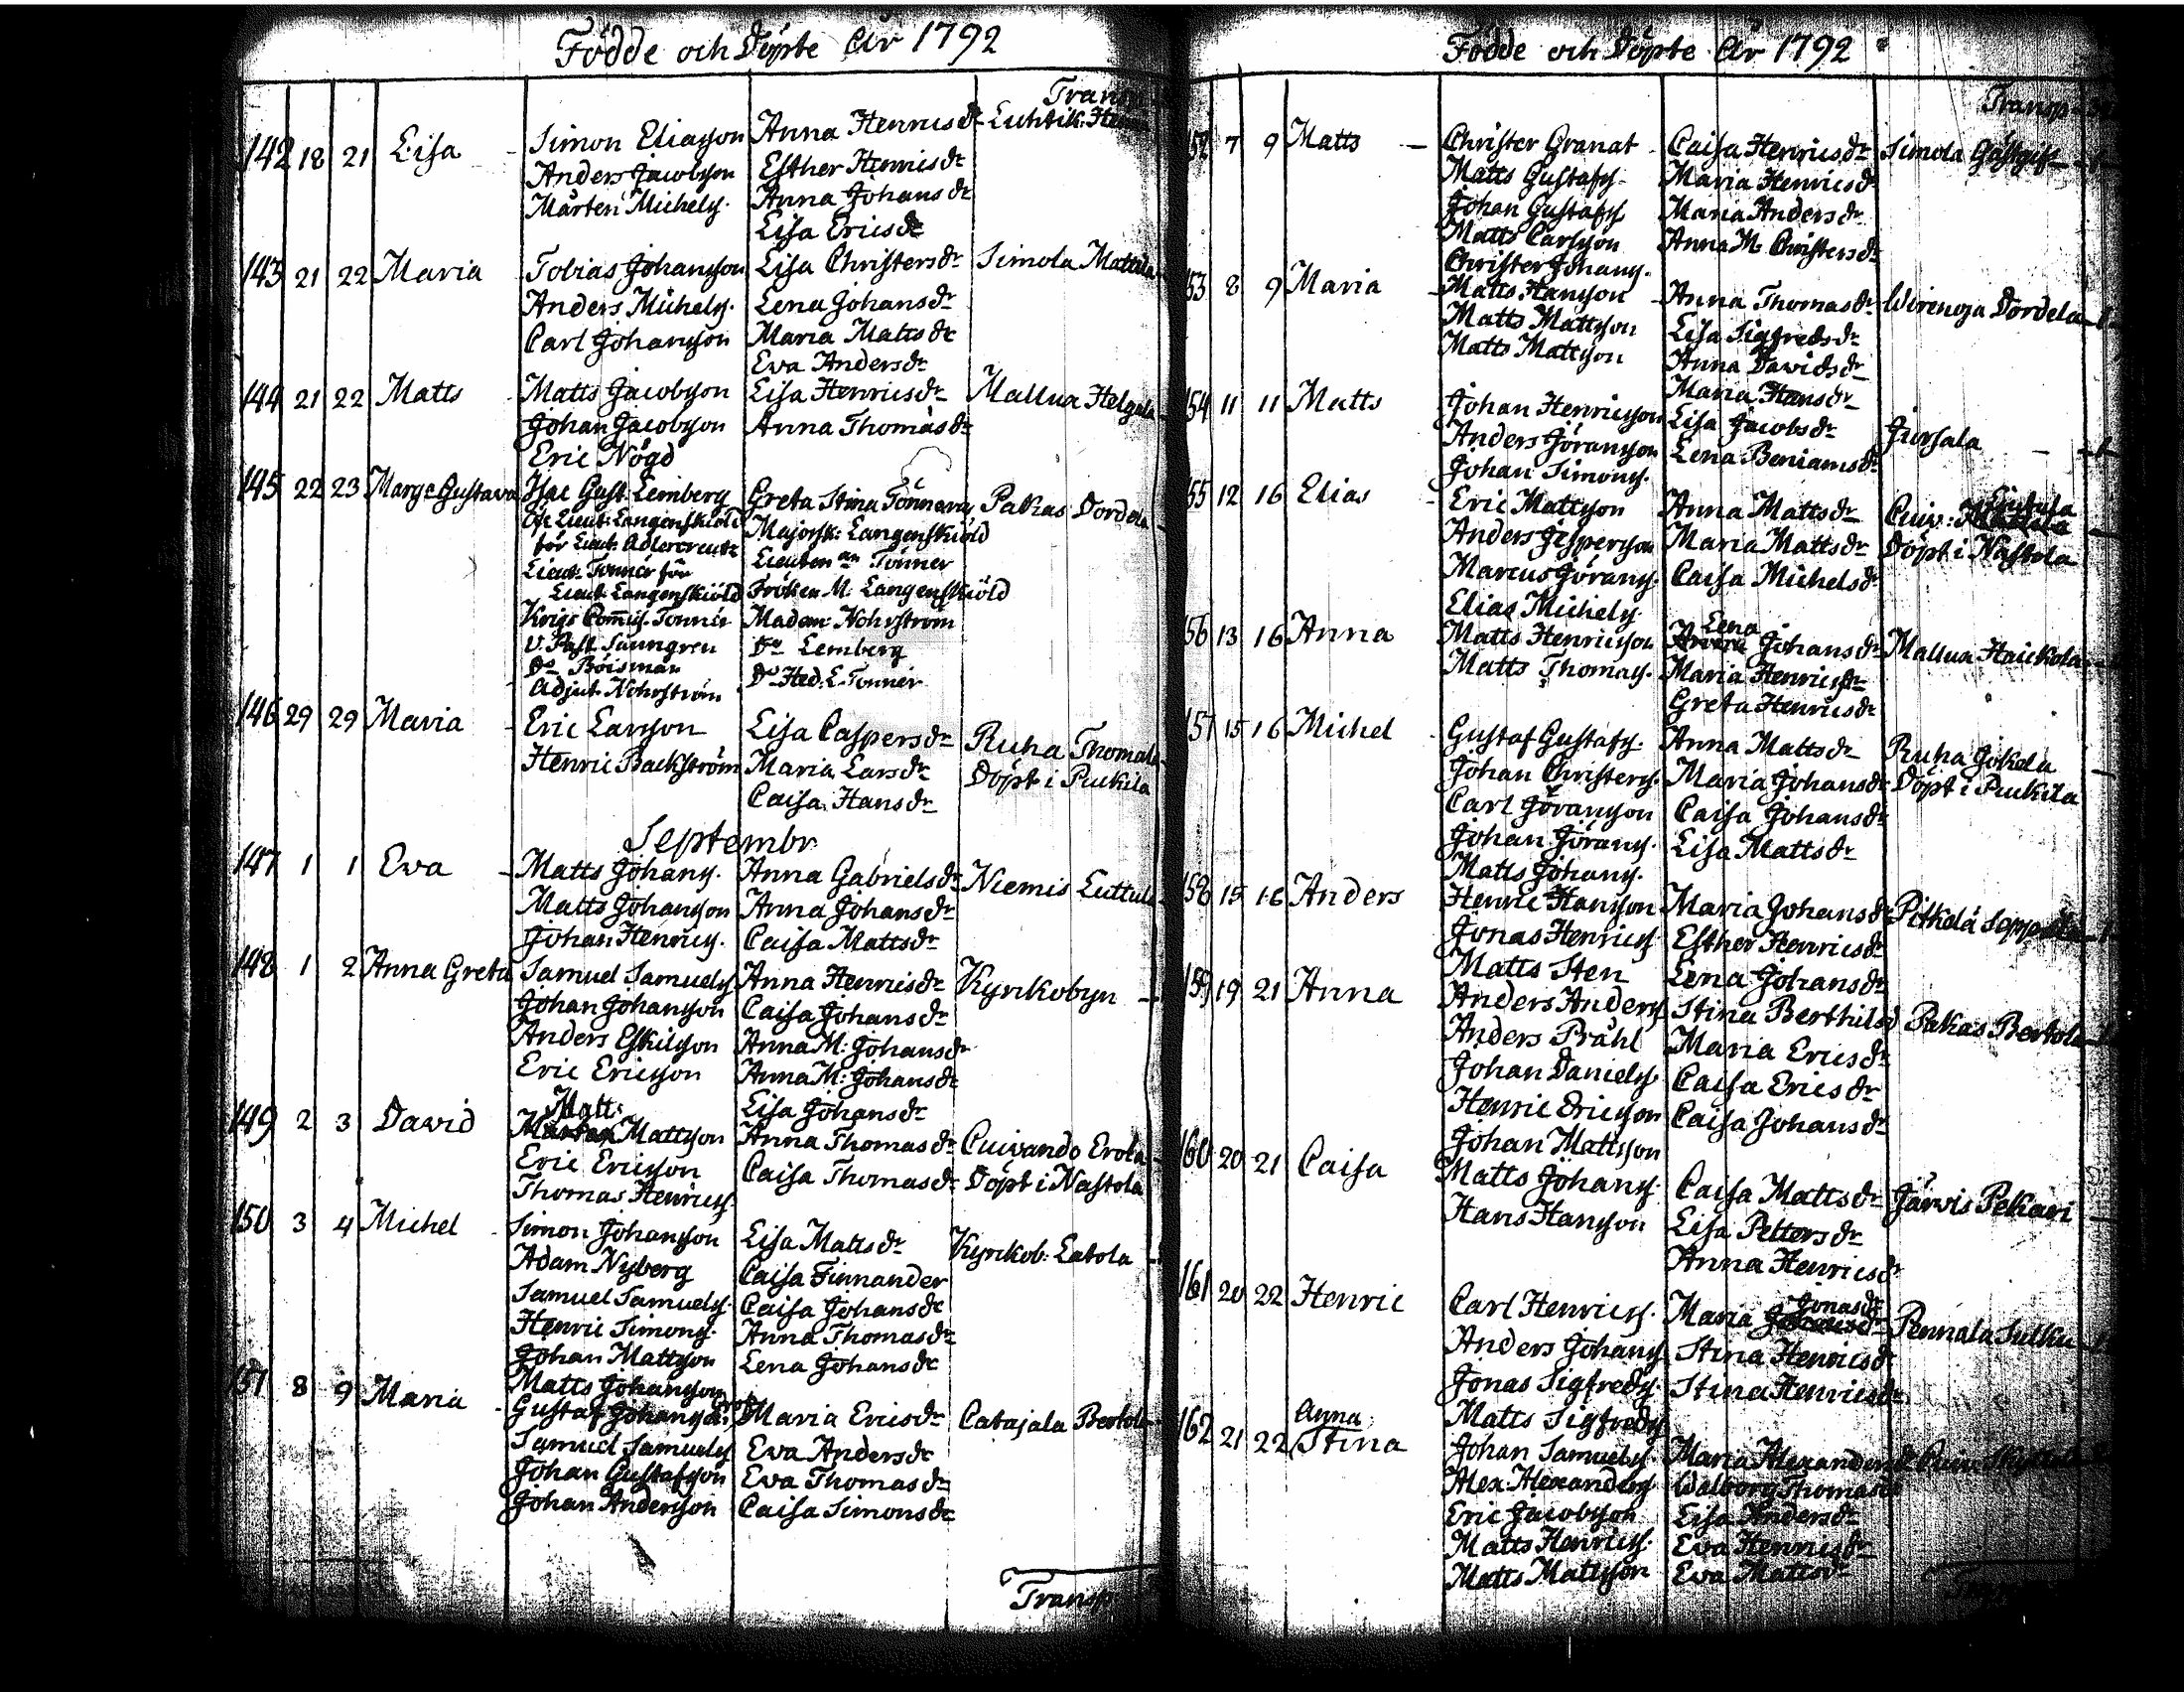 Födde och Döpte År 1792
Transp
142 18 21 Lisa - Simon Eliasson Anna Henricsdr Luhtik:
Anders Jacobsson Esther Henricsdr
Mårten Michels. Anna Johansdr
Lisa Ericsdr
143 21 22 Maria Tobias Johansson Lisa Christersdr Simola Mattila
Anders Michels. Lena Johansdr
Carl Johansson Maria Mattsdr
Eva Andersdr
144 21 22 Matts Matts Jacobsson Lisa Henricsdr Mallua Helgela
Johan Jacobsson Anna Thomasdr
Eric Nögd
145 22 23 Marg: Gustava Isac Gust. Lemberg Greta Stina Tönner Pakas Dordela
Öf: Lieut: Langenskiöld Majorsk: Langenskiöld
för Lieut. Adlercreutz
Lieut. Tonner för Lieutenan Tonner
Lieut. Langenskiöld Fröken M. Langenskiöld
Krigs Com̄is. Tonnér Madam Nohrström
V. Past. Saungren Do Lemberg
Do Böisman Do Hed. L. Tonnér
Adjut. Nohrström
146 29 29 Maria - Eric Larsson Lisa Caspersdr Ruha Thomala
Henric Backström Maria Larsdr Döpt i Puckila
Caisa Hansdr
Septembr
147 1 1 Eva - Matts Johans. Anna Gabrielsdr Niemis Luttula
Matts Johansson Anna Johansdr
Johan Henrics. Caisa Mattsdr
148 1 2 Anna Greta Samuel Samuels. Anna Henricsdr Kyrckobyn -
Johan Johansson Caisa Johansdr
Anders Eskilsson Anna M: Johansdr
Eric Ericsson Anna M: Johansdr
Lisa Johansdr
149 2 3 David Matts Mattsson Anna Thomasdr Cuivando Erola
Eric Ericsson Caisa Thomasdr Döpt i Nastola
Thomas Henrics.
150 3 4 Michel - Simon Johansson Lisa Mattsdr Kyrckob: Latola
Adam Nyberg Caisa Finnander
Samuel Samuels. Caisa Johansdr
Henric Simons. Anna Thomasdr
Johan Mattsson Lena Johansdr
Matts Johansson
151 8 9 Maria - Gustaf Johansson Maria Ericsdr Catajala Bertola
Samuel Samuels. Eva Andersdr
Johan Gustafsson Eva Thomasdr
Johan Andersson Caisa Simonsdr
Transp
Födde och Döpte År 1792
Transp
152 7 9 Matts - Christer Granat Caisa Henricsdr Simola Gästgif
Matts Gustafs. Maria Henricsdr
Johan Gustafs. Maria Andersdr
Matts Carlsson Anna M. Christersdr
Christer Johans.
153 8 9 Maria - Matts Hansson Anna Thomasdr Wirenoja Dordela
Matts Mattsson Lisa Sigfredsdr
Matts Mattsson Anna Davidsdr
Maria Hansdr
154 11 11 Matts Johan Henricsson Lisa Jacobsdr Jursala
Anders Göransson Lena Beniamsdr
Johan Simons.
155 12 16 Elias - Eric Mattsson Anna Mattsdr Cuiv:
Anders Jispersson Maria Mattsdr Döpt i Nastola
Marcus Görans. Caisa Michelsdr
Elias Michels.
156 13 16 Anna Matts Henricsson Lena Johansdr Mallua Haickola
Matts Thomas. Maria Henricsdr
Greta Henricsdr
157 15 16 Michel Gustaf Gustafs. Anna Mattsdr Ruha Jokela
Johan Christers. Maria Johansdr Döpt i Puckila
Carl Göransson Caisa Johansdr
Johan Görans. Lisa Mattsdr
Matts Johans.
158 15 16 Anders Henric Hansson Maria Johansdr Pitkolä Seppälä
Jonas Henrics. Esther Henricsdr
Matts Sten Lena Johansdr
159 19 21 Anna Anders Anders. Stina Berthilsd Pakas Bertola
Anders Pråhl Maria Ericsdr
Johan Daniels. Caisa Ericsdr
Henric Ericsson Caisa Johansdr
Johan Mattsson
160 20 21 Caisa Matts Johans. Caisa Mattsdr Järvis Pekari
Hans Hansson Lisa Pettersdr
Anna Henricsdr
161 20 22 Henric Carl Henrics. Maria Jonasdr Pennala Sulku
Anders Johans. Stina Henricsdr
Jonas Sigfreds. Stina Henricsdr
Matts Sigfreds.
162 21 22 Anna Stina Johan Samuels. Maria Alexandersdr
Alex: Alexanders. Walborg Thomasdr
Eric Jacobsson Lisa Andersdr
Matts Henrics. Eva Henricsdr
Matts Mattsson Eva Mattsdr